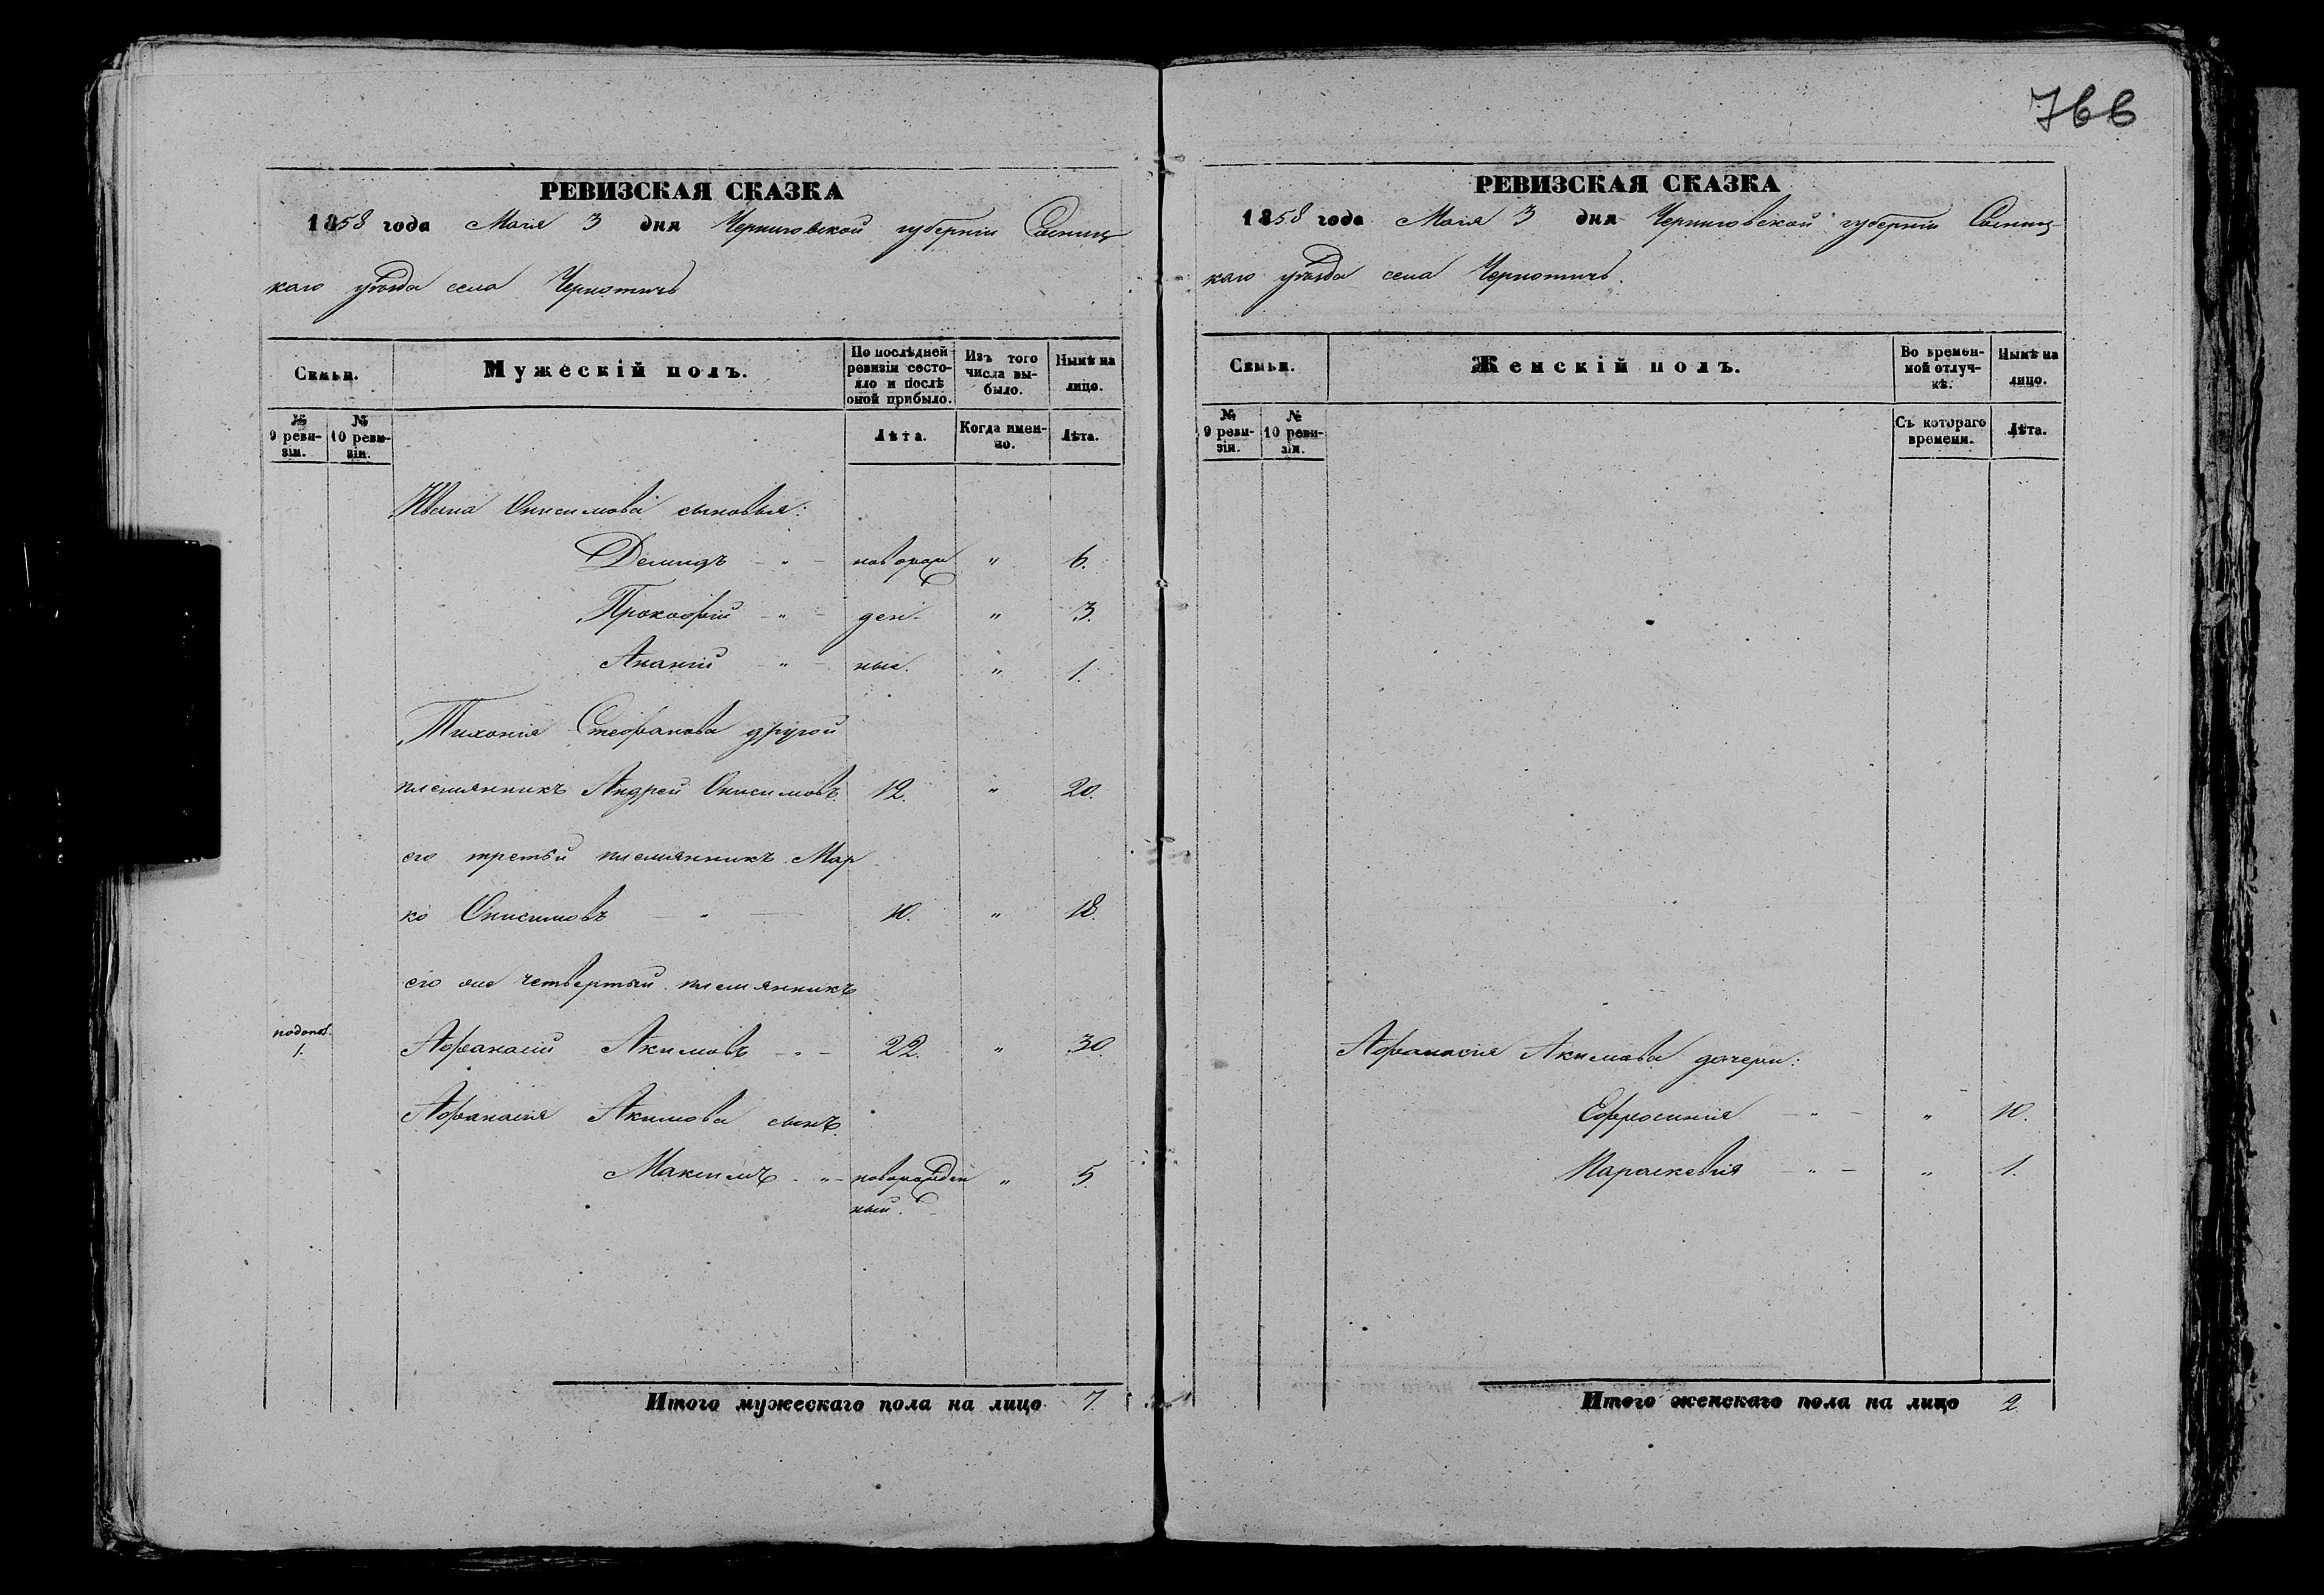 766
РЕВИЗСКАЯ СКАЗКА
1858 года Маія 3 дня Черниговской губерніи Сосниц-
каго уѣзда села Чернотичъ
Семьи.
Мужескій полъ.
По послѣдней ревизіи состояло и послѣ оной прибыло.
Изъ того числа выбыло.
Нынѣ на лицо.
№ 9 ревизіи.
№ 10 ревизіи.
Лѣта.
Когда именно.
Лѣта.
Ивана Онисимова сыновья:
Демидъ - " - новорож " 6.
Прокофій - " - ден- " 3.
Ананій - " - ные. " 1.
Тихонія Стефанова другой
племянникъ Андрей Онисимовъ. 12. " 20.
его третій племянникъ Мар
ко Онисимовъ - " - 10. " 18.
его же четвертый племянникъ
1. Афанасій Акимовъ - " - 22. " 30.
Афанасія Акимова сынъ.
Максимъ - " - новорожден " 5.
ный.
Итого мужескаго пола на лицо 7.
РЕВИЗСКАЯ СКАЗКА
1858 года Маія 3 дня Черниговской губерніи Сосниц-
каго уѣзда села Чернотичъ.
Семьи.
Женскій полъ.
Во временной отлучкѣ.
Нынѣ на лицо.
№ 9 ревизіи.
№ 10 ревизіи.
Съ котораго времени.
Лѣта.
Афанасія Акимова дочери:
Ефросинія - " - " 10.
Параскевія - " - " 1.
Итого женскаго пола на лицо 2.